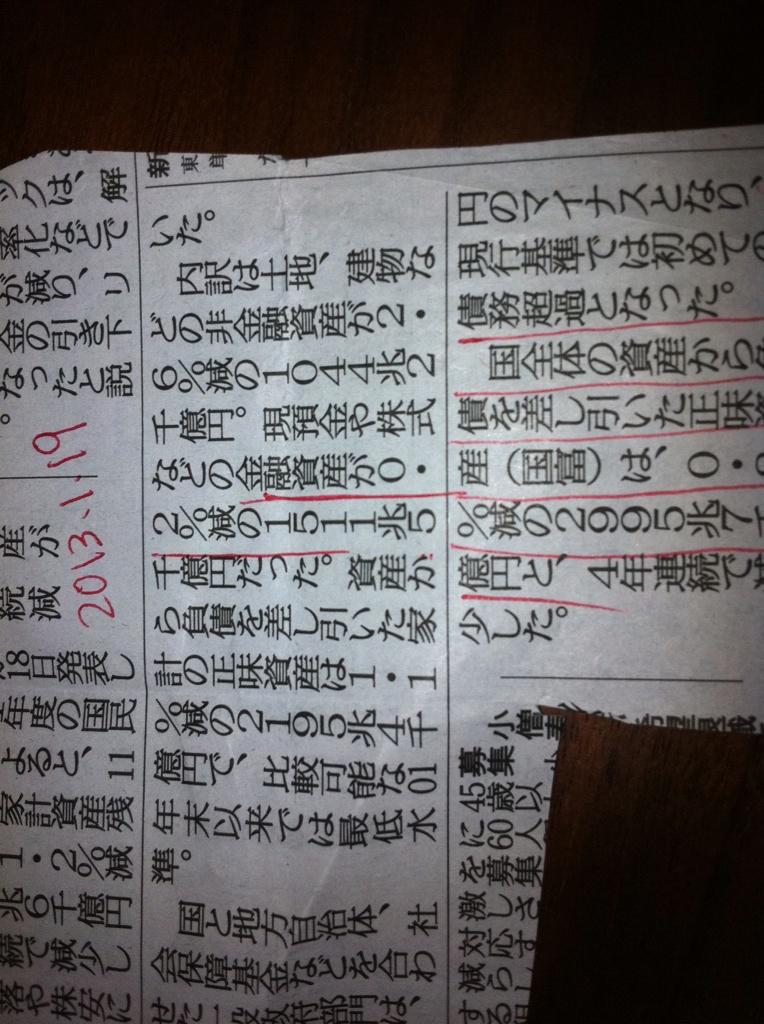 ックは、解
率化などで
が減り、リ
金の引き下
なったと説
。
2013.1.19
産が
続減
18日発表し
年度の国民
よると、11
家計資産残
1・2%減
兆6千億円
続で減少し
落や株安に
いた。
内訳は土地、建物な
どの非金融資産が2・
6%減の1044兆2
千億円。現預金や株式
などの金融資産が0・
2%減の1511兆5
千億円だった。資産か
ら負債を差し引いた家
計の正味資産は1・1
%減の2195兆4千
億円で、比較可能な01
年末以来では最低水
準。
国と地方自治体、社
会保障基金などを合わ
せた一般政府部門は、
新
東
円のマイナスとなり、
現行基準では初めての
債務超過となった。
国全体の資産から
債を差し引いた正味
産(国富)は、0・
%減の2995兆7
億円と、4年連続で
少した。
小僧寿
募集
に45歳以
60人
を募集
激しさ
対応す
減ら